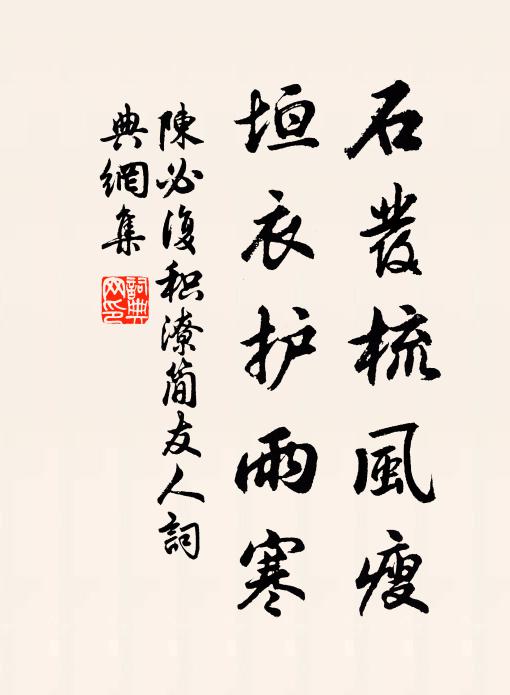 石發梳風瘦
垣衣护雨寒
陳必復积潦简友人詞
典網集
詞典
网印